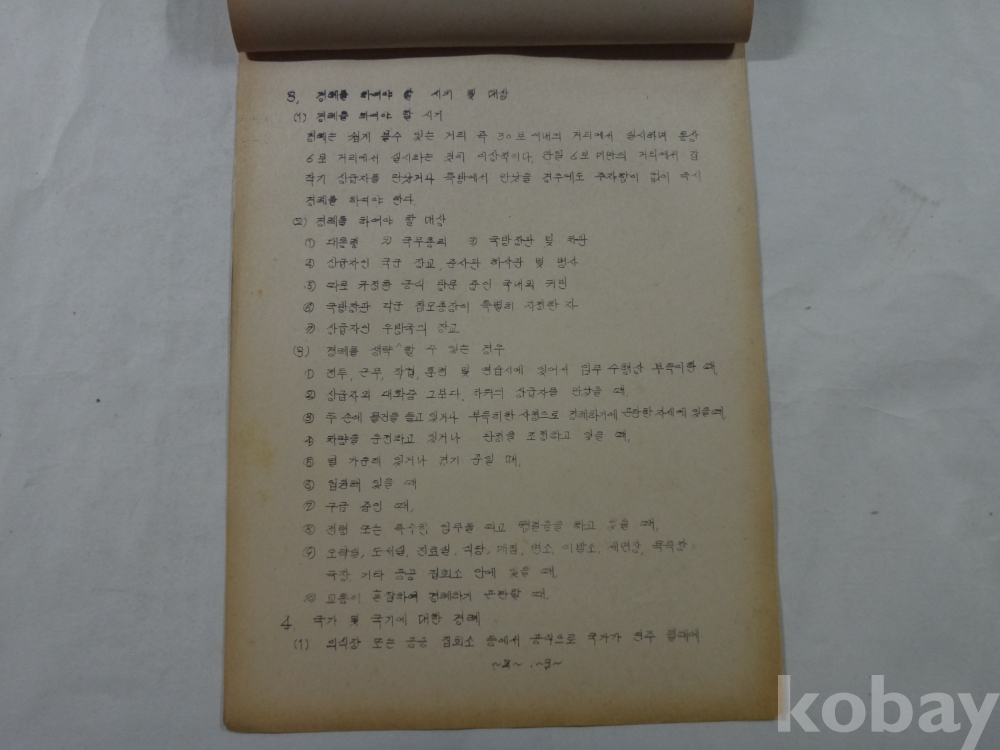 3. 경례를 하여야 할 시기 및 대상
(1) 경례를 하여야 할 시기
경례는 쉽게 볼수 있는 거리 즉 30보 이내의 거리에서 실시하며 통상
6보 거리에서 실시하는 것이 이상적이다. 만일 6보 미만의 거리에서 갑
작기 상급자를 만났거나 측방에서 만났을 경우에도 주저함이 없이 즉시
경례를 하여야 한다.
(2) 경례를 하여야 할 대상
① 대통령 ② 국무총리 ③ 국방장관 및 차관
④ 상급자인 국군 장교, 준사관 하사관 및 병사
⑤ 따로 규정한 공식 방문 중인 국내외 귀빈
⑥ 국방장관 각군 참모총장이 특별히 지정한 자
⑦ 상급자인 우방국의 장교
(3) 경례를 생략 할 수 있는 경우
① 전투, 근무, 작업, 훈련 및 연습시에 있어서 임무 수행상 부득이한 때,
② 상급자와 대화중 그보다, 하위의 상급자를 만났을 때,
③ 두 손에 물건을 들고 있거나 부득이한 사정으로 경례하기에 곤란한 자세에 있을때,
④ 차량을 운전하고 있거나 함정을 조정하고 있을 때,
⑤ 말 가운데 있거나 걷기 중일 때,
⑥ 입원해 있을 때
⑦ 구금 중인 때,
⑧ 전령 또는 특수한 임무를 띠고 행동중을 하고 있을 때,
⑨ 오락실, 도서실, 진료실, 식당, 매점, 변소, 이발소, 세면장, 목욕탕
극장, 기타 공공 집회소 안에 있을 때,
⑩ 교통이 혼잡하여 경례하기 곤란할 때.
4 국가 및 국기에 대한 경례
(1) 의식장 또는 공공 집회소 등에서 공식으로 국가가 연주 될때에
kobay